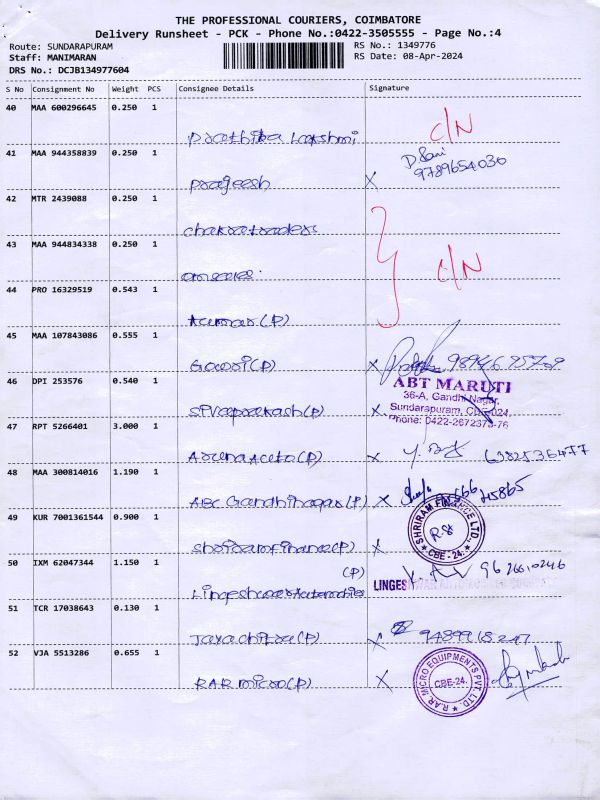 THE PROFESSIONAL COURIERS, COIMBATORE
Delivery Runsheet - PCK - Phone No.:0422-3505555 - Page No.:4
Route: SUNDARAPURAM
RS No.: 1349776
Staff: MANIMARAN
RS Date: 08-Apr-2024
DRS No.: DCJB134977604
S No Consignment No Weight PCS Consignee Details Signature
40 MAA 600296645 0.250 1
Prathiba Lakshmi C/N
41 MAA 944358839 0.250 1
D Rani
9789654030
Prageesh X
42 MTR 2439088 0.250 1
43 MAA 944834338 0.250 1
C/N
44 PRO 16329519 0.543 1
Kumar(P)
45 MAA 107843086 0.555 1
Gowri(P) X
46 DPI 253576 0.540 1
ABT MARUTI
36-A, Gandhi Nagar,
Sundarapuram, CBE-024
Phone: 0422-2672373-76
Sivaprakash(P) X
47 RPT 5266401 3.000 1
Aruna Auto(P) X
48 MAA 300814016 1.190 1
ABC Gandhinagar(P) X
49 KUR 7001361544 0.900 1
SHRIRAM FINANCE LTD.
CBE-24.
Shriram Finance(P) X
50 IXM 62047344 1.150 1
(P)
LINGESHWARAN
51 TCR 17038643 0.130 1
Jayachitra(P) X 9489968247
52 VJA 5513286 0.655 1
R.A.R. MICRO EQUIPMENTS PVT. LTD.
CBE-24.
RAR micro(P) X